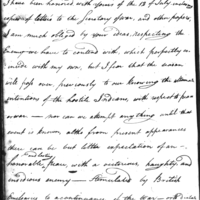 I have been honored with yours of the 17 of July inclosing
copies of letters to the Secretary of war, and other papers,
I am much obliged by your ideas, respecting the
Enemy we have to contend with, which perfectly co-
incide with my own, but I fear that the season
will pass over, previously to our knowing the ultimate
intentions of the hostile Indians, with respect to peace
or war — nor can we attempt any thing until that
event is known, altho from present appearances
there can be but little expectation of an
honorable & lasting peace, with a victorious, haughty, and
insidious enemy — stimulated by British
to a continuance of the war —